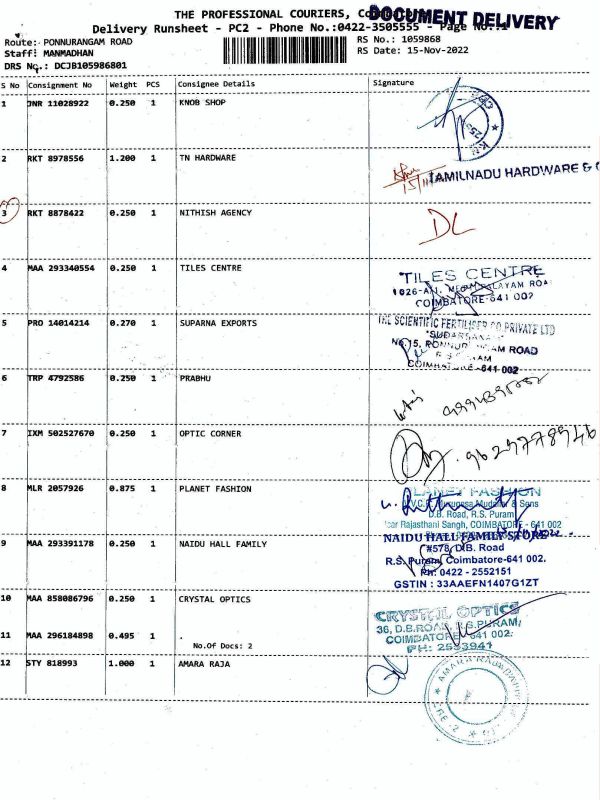 THE PROFESSIONAL COURIERS,
DOCUMENT DELIVERY
Delivery Runsheet - PC2 - Phone No.:0422-3505555 - Page No.:1
Route: PONNURANGAM ROAD
RS No.: 1059868
Staff: MANMADHAN
RS Date: 15-Nov-2022
DRS No.: DCJB105986801
S No Consignment No Weight PCS Consignee Details Signature
1 JNR 11028922 0.250 1 KNOB SHOP
2 RKT 8978556 1.200 1 TN HARDWARE
TAMILNADU HARDWARE &
3 RKT 8878422 0.250 1 NITHISH AGENCY
DL
4 MAA 293340554 0.250 1 TILES CENTRE
TILES CENTRE
COIMBATORE-641 002
5 PRO 14014214 0.270 1 SUPARNA EXPORTS
THE SCIENTIFIC FERTILISER CO PRIVATE LTD
"SUDARSANA"
No.15, ROAD
COIMBATORE-641 002
6 TRP 4792586 0.250 1 PRABHU
7 IXM 502527670 0.250 1 OPTIC CORNER
9629778946
8 MLR 2057926 0.875 1 PLANET FASHION
PLANET FASHION
& Sons
D.B. Road, R.S. Puram
Rajasthani Sangh, COIMBATORE - 641 002
9 MAA 293391178 0.250 1 NAIDU HALL FAMILY
NAIDU HALL FAMILY STORE
#578, D.B. Road
R.S. Puram, Coimbatore-641 002.
Ph: 0422 - 2552151
GSTIN : 33AAEFN1407G1ZT
10 MAA 858086796 0.250 1 CRYSTAL OPTICS
CRYSTAL OPTICS
36, D.B.ROAD, R.S.PURAM,
COIMBATORE - 641 002.
PH: 2533941
11 MAA 296184898 0.495 1 .
No.Of Docs: 2
12 STY 818993 1.000 1 AMARA RAJA